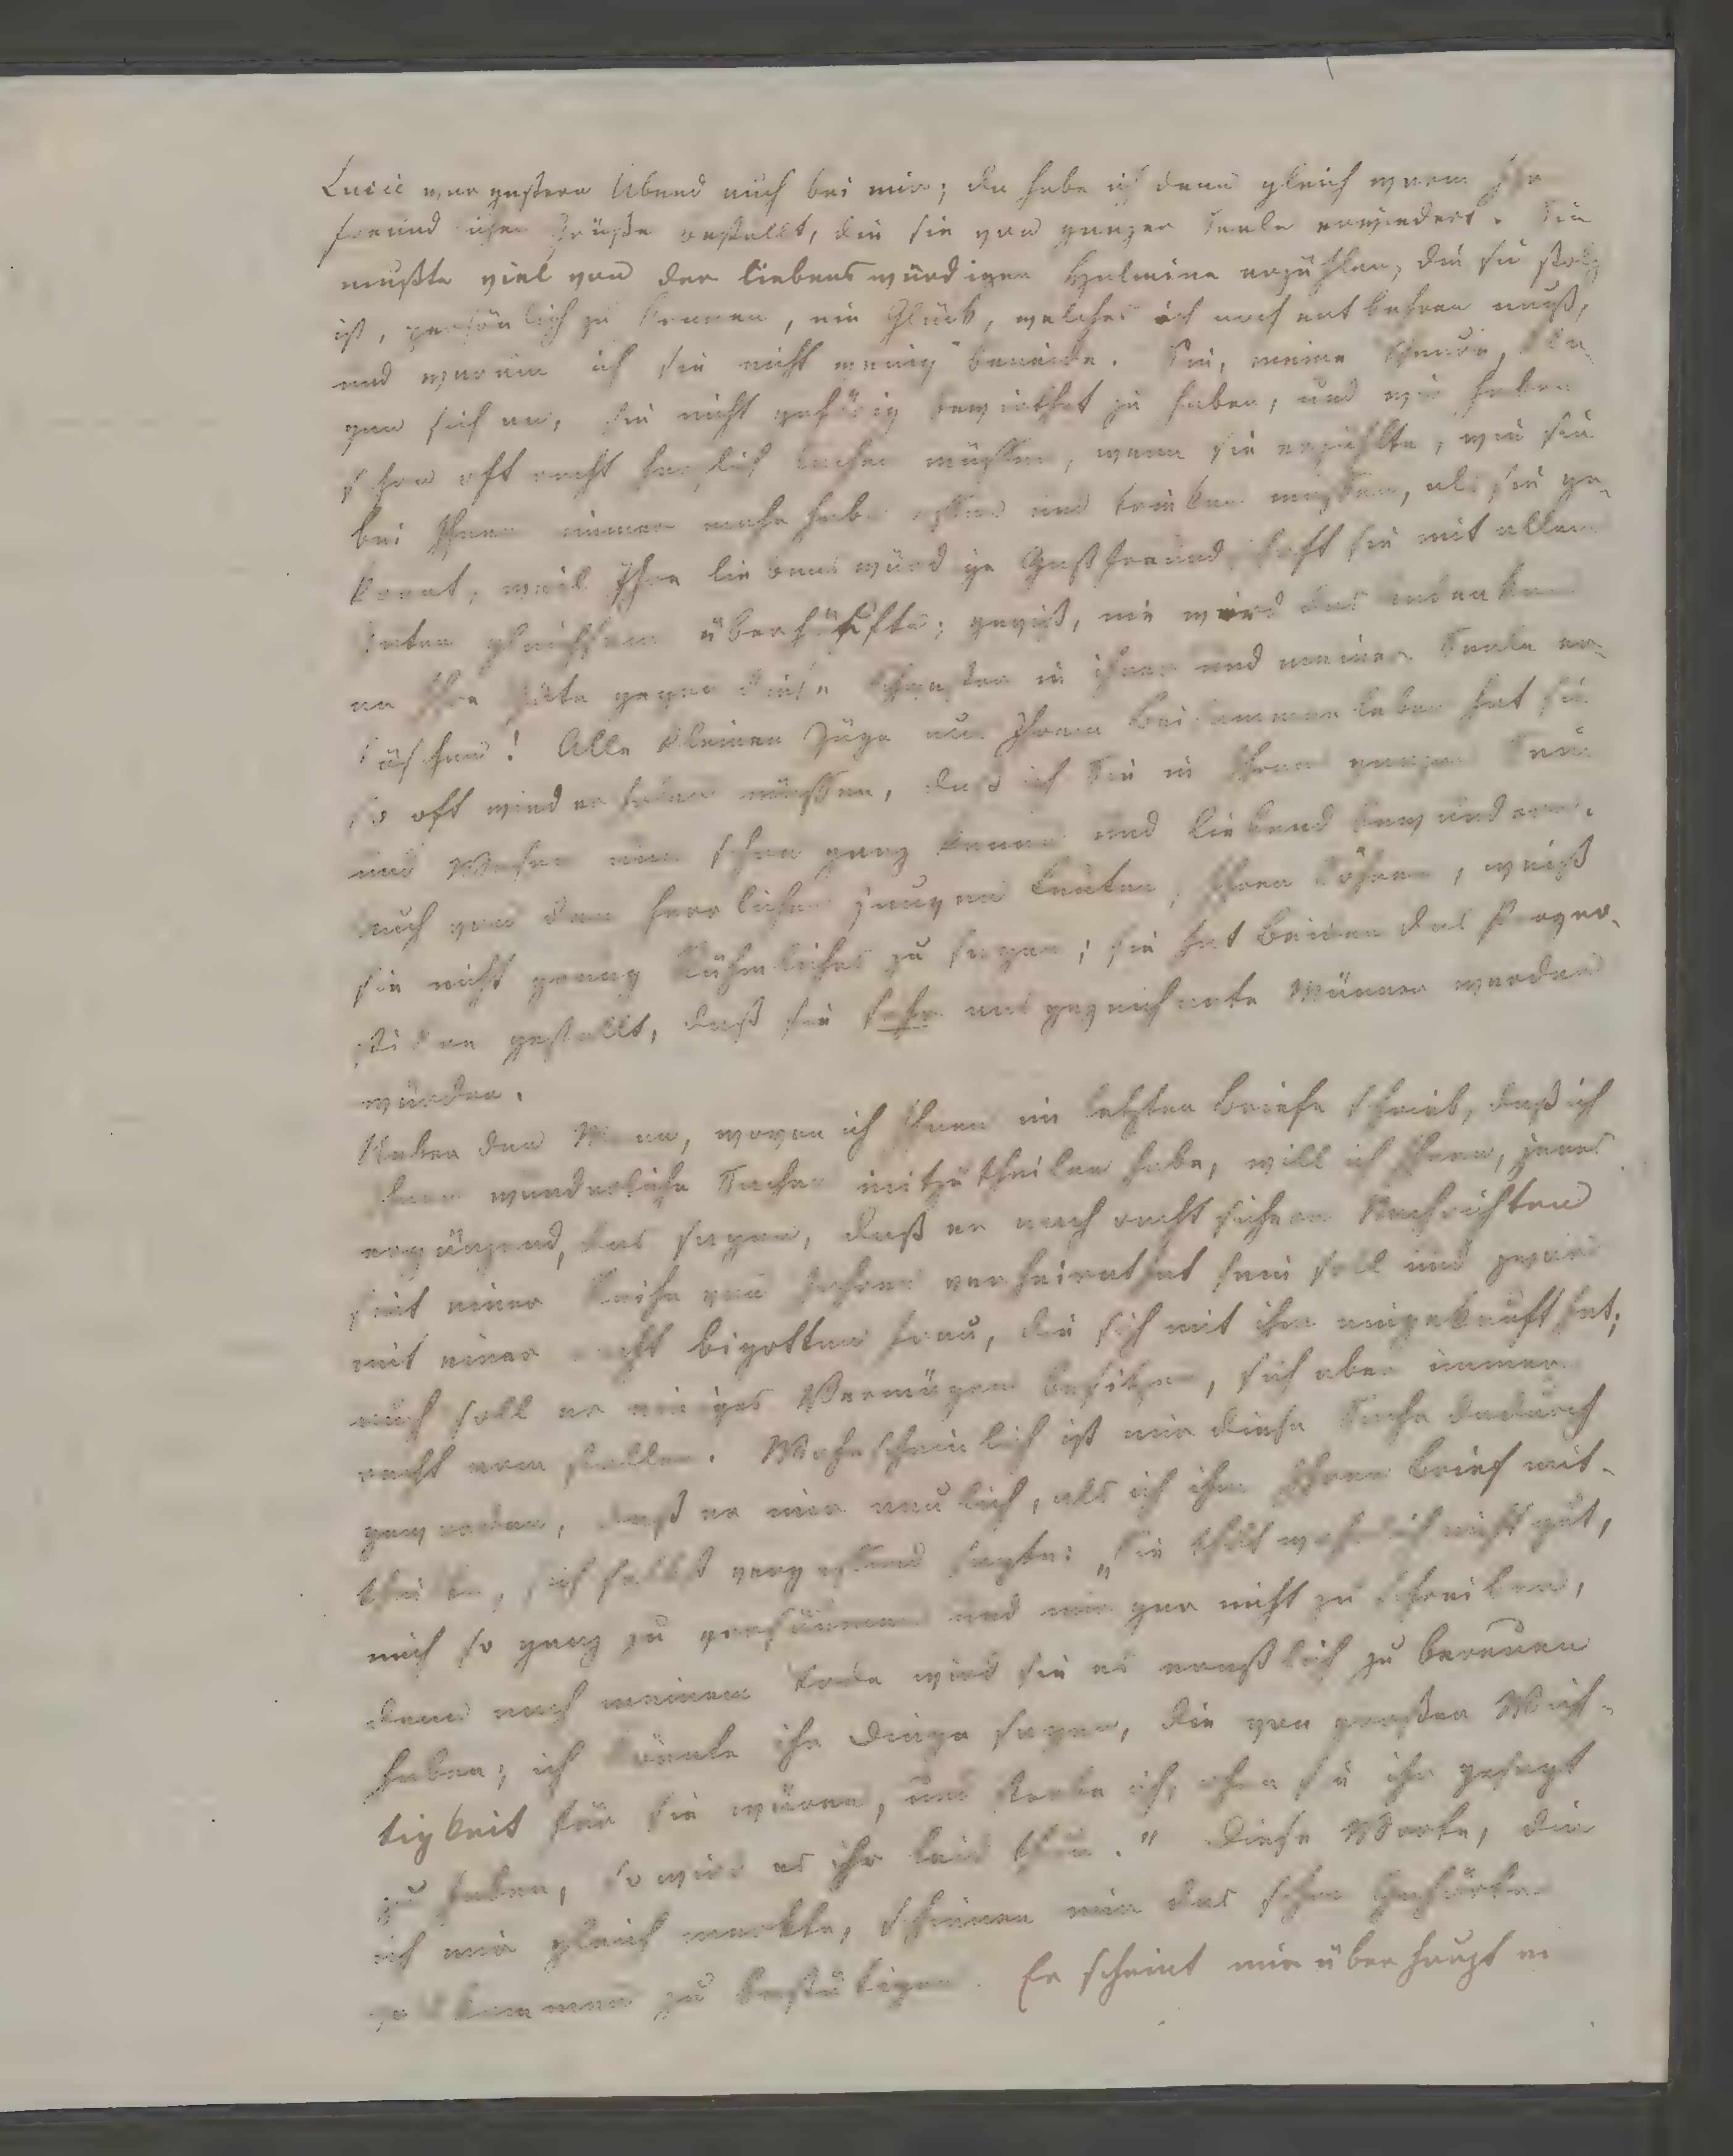 Lucie war gestern Abend auch bei mir; da habe ich denn gleich warm Ihre
freundlichen Grüße bestellt, die sie von ganzer Seele erwiedert. Sie
mußte viel von der liebenswürdigen Helmina erzählen, die sie stolz
ist, persönlich zu kennen, ein Glück, welches ich noch entbehren muß,
und warum ich sie nicht wenig beneide. Sie, meine Theure, kla-
gen sich an, sie nicht gehörig bewirthet zu haben, und wir haben
schon oft recht herzlich lachen müssen, wenn sie erzählte, wie sie
bei Ihnen immer mehr habe essen und trinken müssen, als sie ge-
konnt, weil Ihre liebenswürdige Gastfreundschaft sie mit allem
Guten gleichsam überhäufte; gewiß, nie wird das Andenken
an Ihre Güte gegen diese Schwester in ihrer und meiner Seele er-
löschen! Alle kleinen Züge aus Ihrem Beisammenleben hat sie
so oft wiederholen müssen, daß ich Sie in Ihrem ganzen Sein
und Wesen nun schon ganz kenne und liebend bewundere.
Auch von den herrlichen jungen Leuten, Ihren Söhnen, weiß
sie nicht genug Rühmliches zu sagen; sie hat beiden das Prognos-
tikon gestellt, daß sie sehr ausgezeichnete Männer werden
würden.
Ueber den Mann, wovon ich Ihnen im letzten Briefe schrieb, daß ich
Ihnen wunderliche Sachen mitzutheilen habe, will ich Ihnen, jenes
ergänzend, das sagen, daß er nach recht sichern Nachrichten
seit einer Reihe von Jahren verheirathet sein soll und zwar
mit einer recht bigotten Frau, die sich mit ihm eingekauft hat;
auch soll er einiges Vermögen besitzen, sich aber immer
recht arm stellen. Wahrscheinlich ist mir diese Sache dadurch
geworden, daß er mir neulich, als ich ihm Ihren Brief mit-
theilte, sich selbst vergessend sagte: „Sie thut wahrlich nicht gut,
mich so ganz zu versäumen und mir gar nicht zu schreiben,
denn nach meinem Tode wird sie es ernstlich zu bereuen
haben; ich könnte ihr Dinge sagen, die von großer Wich-
tigkeit für sie wären, und sterbe ich, ohne sie ihr gesagt
zu haben, so wird es ihr leid thun." Diese Worte, die
ich mir gleich merkte, scheinen mir das schon Gehörte
vollkommen zu bestätigen. Er scheint mir überhaupt